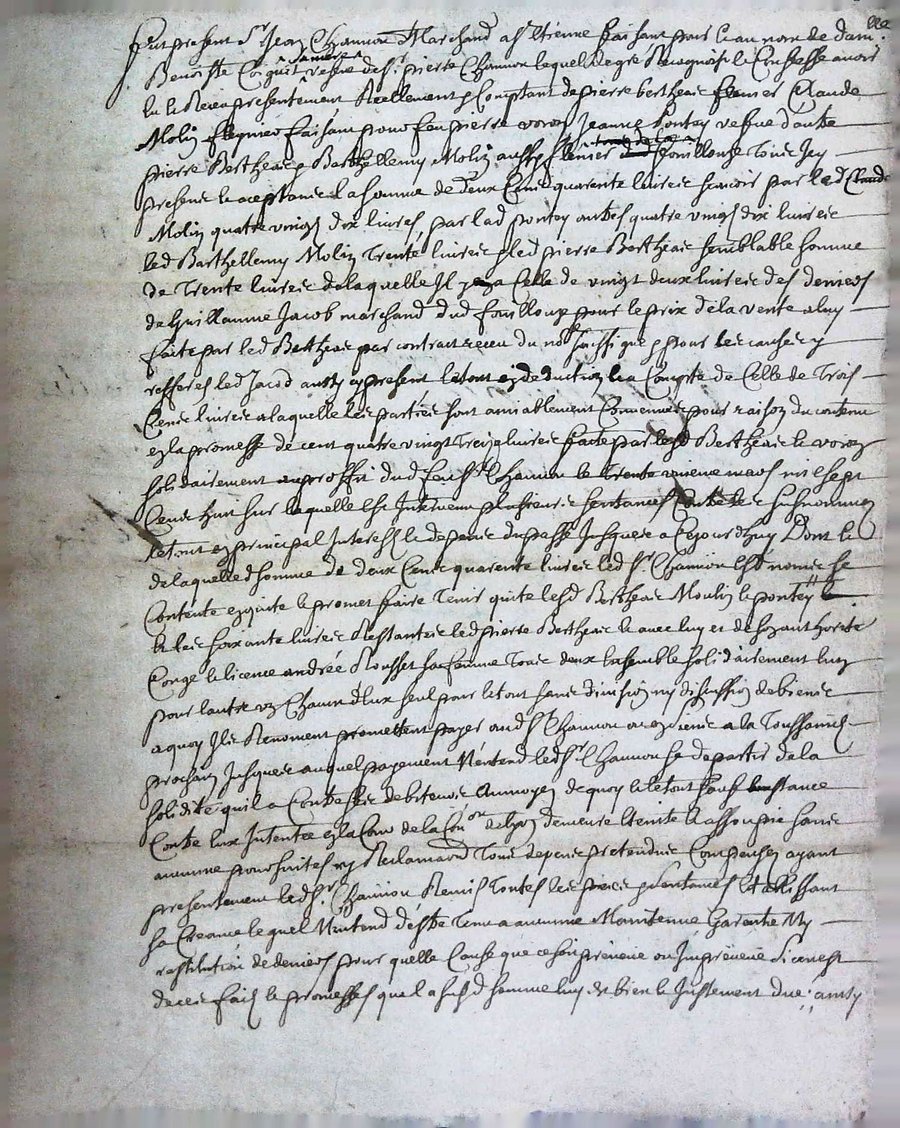 Fut present Sr Jean Channon Marchand a St Etienne faisant pour & au nom de dam.lle
Benoiste Coquit sa mere vefve de Sr pierre Channon lequel de gré Recognoist & Confesse avoir
eu & Receu presentement Reellement & Comptant de pierre bertheas fermier Claude
Molin faisant pour feu pierre voron Jeanne pontey vefve d'autre
pierre Bertheas & Barthellemy Molin aussy fermier Fouilloux Tous Jcy
present & aceptants la somme de deux Cents quarente livres scavoir par led Claude
Molin quatre vingt dix livres, par lad pontey autres quatre vingt dix livres
led Barthellemy Molin Trente livres & led pierre Bertheas semblable somme
de Trente livres de laquelle Jl y a Celle de vingt deux livres des deniers
de Guillaume Jacob marchand dud fouilloux pour le prix de la vente a luy
faite par led Bertheas par contract receu du nore soussigne & pour les causes y
refferes led Jacob aussy present le tout en deduction & a Compte de Celle de Trois
Cents livres a laquelle les parties sont amiablement Convenues pour raison du contenu
en la promesse de cent quatre vingt Treize livres faite par lesd Bertheas & voron
solidairement au proffit dud feu Sr Channon le Trente uniene mars mil sept
Cent huit sur laquelle est Intervenu plusieurs sentances Contre les susnommes
le tout en principal Interest & depens du passé Jusques a Cejourdhuy Dont &
de laquelle d somme de deux Cents quarente livres led Sr Channon esd noms se
Contente en quitte & promet faire Tenir quite lesd Bertheas Moulin & pontey
& les soixante livres Restantes led pierre Bertheas & avec luy et de son authorite
Conge & licence andrée Rousset sa femme Tous deux Ensemble solidairement lun
pour lautre un Chacun deux seul pour le tout sans division ny discussion de biens
a quoy Jls Renoncent promettent payer aud Sr Channon ou es siens a la Toussaincts
prochain Jusques auquel payement N'entend led Sr Channon se departir de la
solidité quil a Contre ses debiteurs Au moyen de quoy & le tout sauf Instance
Contre eux Intentée en la Cour de la Conon de Lyon demeure Eteinte & assoupie sans
aucunne poursuites ny Reclamaon Tous depens pretendus Compenses ayant
presentement led Sr Channon Remis Toutes les pieces & sentances Etablissant
sa Creance lequel N'entend Destre Tenu a aucunne Maintenue Garantie Ny
restitution de deniers pour quelle Cause que ce soit preveue ou Jmpreveue Si ce nest
de ces faits & promesses que la susd somme luy est bien & Justement due : aussy